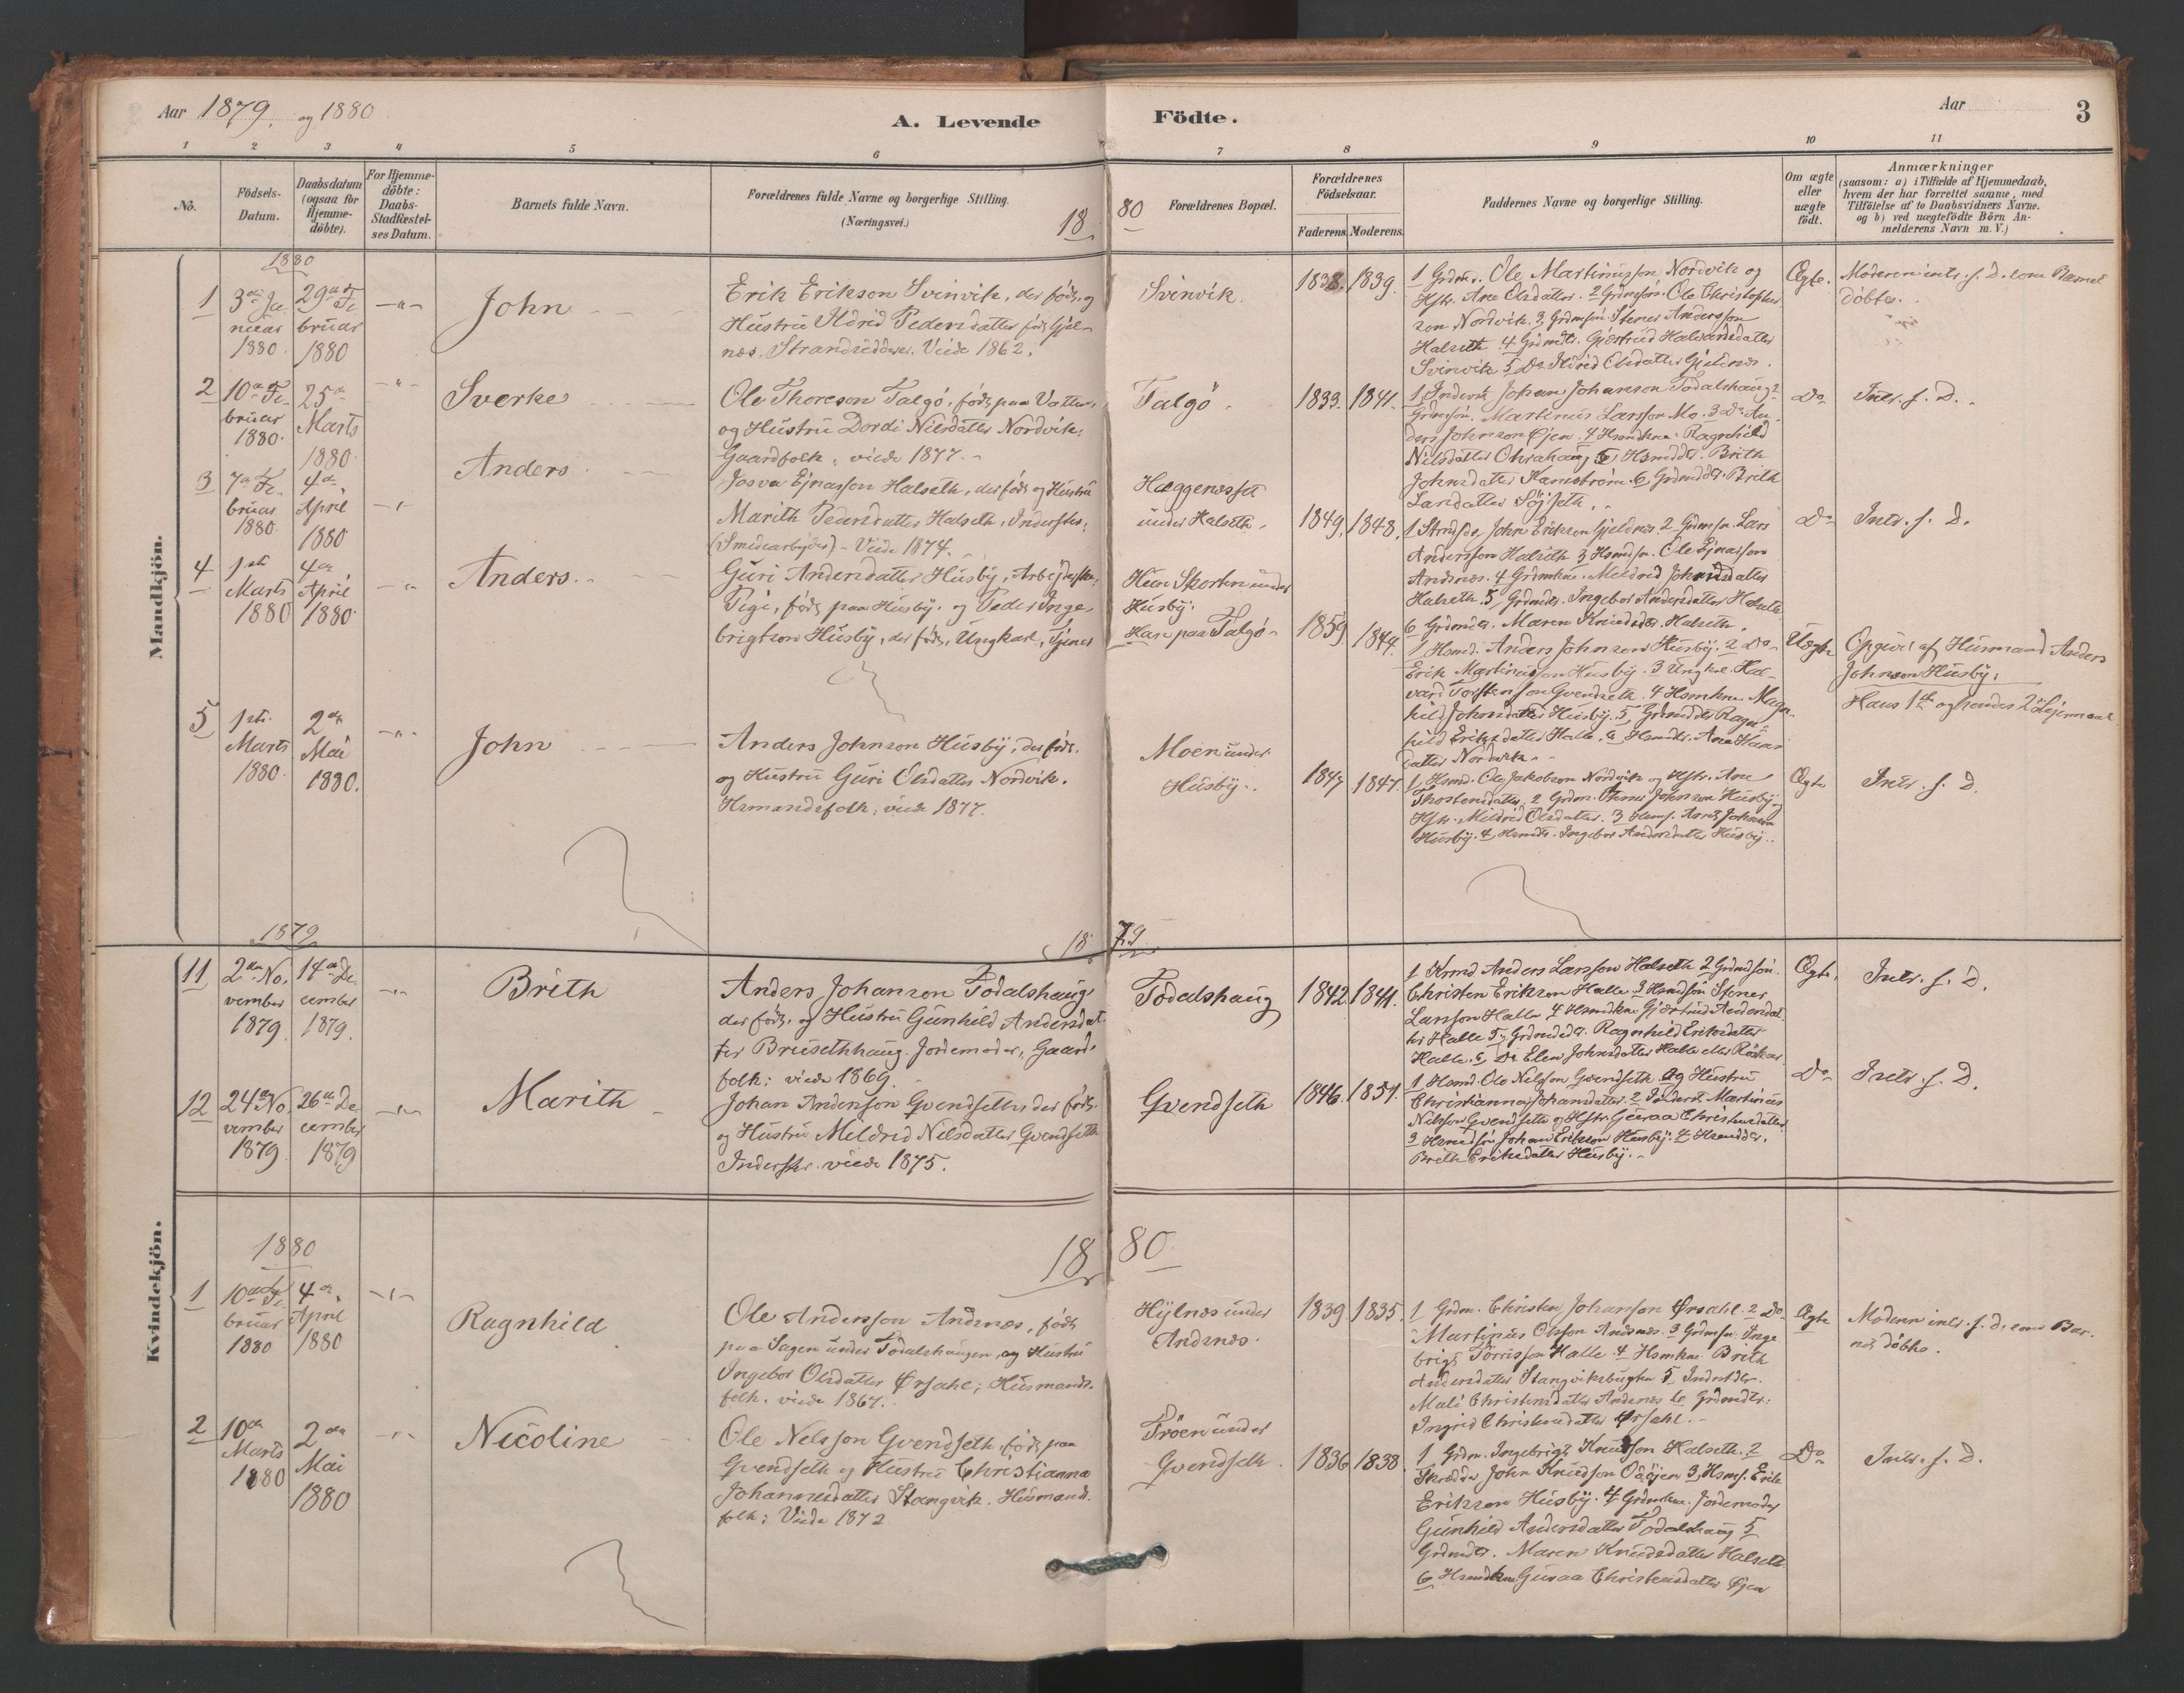 Aar 1879, og 1880
A. Levende Födte.
Aar
3
1 2 3 4 5 6 7 8 9 10 11
No.
Födsels-Datum.
Daabsdatum (ogsaa for Hjemme-döbte).
For Hjemme-döbte: Daabs-Stadfæstel-ses Datum.
Barnets fulde Navn.
Forældrenes fulde Navne og borgerlige Stilling.
(Næringsvei.)
Forældrenes Bopæl.
Forældrenes Födselsaar.
Faderens. Moderens.
Faddernes Navne og borgerlige Stilling.
Om ægte eller uægte födt.
Anmærkninger
(saasom: a) i Tilfælde af Hjemmedaab,
hvem der har forrettet samme, med
Tilföielse af to Daabsvidners Navne.
og b) ved uægtefödte Börn An-
melderens Navn m. V.)
18 80
Mandkjön.
1880
1
3die Ja
nuar
1880.
29de Fe
bruar
1880
John
Erik Erikson Svinvik, der föds, og
Hustru Ildrid Pedersdatter föds Gjel-
nes. Strandsiddere. Viede 1862.
Svinvik.
1838. 1839.
1 Grdmd. Ole Martinusson Nordvik og
Hstr. Ane Olsdatter. 2 Grdmsön. Ole Christopher
son Nordvik. 3 Grdmsön Stener Andersson
Halseth. 4 Grdmdtr. Gjertrud Halvorsdatter
Svinvik 5 Do Ildrid Olsdatter Gjeldnes.
Ægte.
Moderen intr. s. D. som Barnet
döbtes.
2
10de Fe-
bruar
1880.
25de
Marts
1880.
Sverke
Ole Thoreson Talgö, föds paa Vatten,
og Hustru Dordi Nilsdatter Nordvik:
Gaardfolk, viede 1877.
Talgö.
1833. 1841.
1 Inderst Johan Johanson Todalshaug 2
Grdmsön. Martinus Larsson Mo. 3 Do An-
ders Johnson Øjen. 4 Hsmdkne Ragnhild
Nilsdatter 5 Hsmddtr. Brith
Johnsdatter Kanestrøm. 6 Grdmdtr. Brith
Larsdatter
Do
Intr. s. D.
3
7de Fe-
bruar
1880.
4de
April
1880
Anders
Josva Ejnasson Halseth, der föds og Hustru
Marith Pedersdatter Halseth, Inderster,
(Smedearbejder) - Viede 1874.
Hæggenesset
under Halseth.
1849. 1848.
1 Strdsdr John Erikson Gjeldnes. 2 Grdmsn. Lars
Andersson Halseth 3 Hsmdsn. Ole Ejnasson
Andsnes. 4 Grdmkne. Mildrid Johnsdatter
Halseth. 5 Grdmdtr. Ingebor Andersdatter Halseth
6 Grdmdtr. Maren Knudsdtr. Halseth.
Do
Intr. s. D.
4
1ste
Marts
1880
4de
April
1880
Anders.
Guri Andersdatter Husby, Arbejderske,
Pige, föds paa Husby. og Peder Inge-
brigtson Husby, der föds, Ungkarl, Tjener
Hun Skorten under
Husby.
Han paa Talgö
1859. 1844.
1 Hsmd. Anders Johnson Husby. 2 Do
Erik Martinusson Husby. 3 Ungkrl. Hal-
vard Torstensson Gvendseth. 4 Hsmkne. Magn-
hild Johnsdatter Husby. 5 Grdmddtr Ragn-
hild Eriksdatter Halle. 6 Hsmdtr. Ane Hans
datter Nordvik.
Uægte
Opgivet af Husmand Anders
Johnson Husby:
Hans 1ste og hendes 2det Lejermaal.
5
1ste
Marts
1880.
2den
Mai
1880.
John
Anders Johnson Husby, der föds.
og Hustru Guri Olsdatter Nordvik.
Husmandsfolk, viede 1877.
Moen under
Husby.
1847 1847.
1 Hsmd. Ole Jakobson Nordvik og Hstr. Ane
Thostensdatter. 2 Grdm. Johnson Husby og
Hstr. Mildrid Olsdatter. 3 Hsms. Johnson
Husby. 4 Hsmdtr. Ingebor Andersdatter Husby.
Ægte
Intr. s. D.
1879
18 79
Kvindekjön.
11
2den No.
vember
1879.
14de De
cember
1879.
Brith
Anders Johanson Todalshaug
der föds. og Hustru Gunhild Andersdat-
ter Brusethhaug. Jordemoder, Gaard-
folk; viede 1869.
Todalshaug
1842. 1841.
1 Krmd Anders Larsson Halseth 2 Grdmdsön.
Christen Erikson Halle 3 Hsmdsön Stener
Larsson Halle, 4 Hsmdkne Gjertrud Andersdat-
ter Halle 5 Grdmddtr. Ragnhild Eriksdatter
Halle. 6 Do Elen Johnsdatter Halle
Ægte.
Intr. s. D.
12
24de No.
vember
1879.
26de De
cember
1879
Marith
Johan Anderson Gvendseth, der föds.
og Hustru Mildrid Nilsdatter Gvendseth
Inderster. viede 1875.
Gvendseth
1846. 1851.
1 Hsmd. Ole Nilsson Gvendseth og Hustru
Christianna Johansdatter. 2 Inderst Martinus
Nilsson Gvendseth og Hstr. Guraa Christensdatter
3 Hsmdsön Johan Erikson Husby 4 Hsmddtr.
Brith Eriksdatter Husby.
Do
Intr. s. D.
1880
18 80
1
10de Fe
bruar
1880
4de
April
1880
Ragnhild
Ole Andersson Andsnes, föds
paa Sagen under Todalshaugen, og Hustru
Ingebor Olsdatter Ørsahl; Husmands-
folk. viede 1867.
Hjelnes under
Andsnes.
1839. 1835.
1 Grdm. Christen Johanson Ørsahl. 2 Do
Martinus Olsson Andsnes. 3 Grdmsn. Inge
brigt Torrisson Halle. 4 Hsmkne. Brith
Andersdatter Stangviksbugten 5 Indstdtr.
Mali Christensdatter Andsnes 6 Grdmdtr:
Ingrid Christensdatter Ørsahl.
Ægte
Moderen intr. s. d. som Bar-
net döbtes.
2
10de
Marts
1880
2den
Mai
1880
Nicoline
Ole Nelsson Gvendseth, föds paa
Gvendseth og Hustru Christianna
Johannesdatter Stangvik. Husmands-
folk: Viede 1872
Trøen under
Gvendseth.
1836 1838.
1 Grdm. Ingebrigt Knudson Halseth. 2
Skrædder John Knudson 3 Hsms. Erik
Erikson Husby. 4 Grdmkne. Jordemoder
Gunhild Andersdatter Todalshaug 5
Grdmdtr. Maren Knudsdatter Halseth
6 Hsmdkne Guraa Christensdatter Øjen
Do
Intr. s. D.